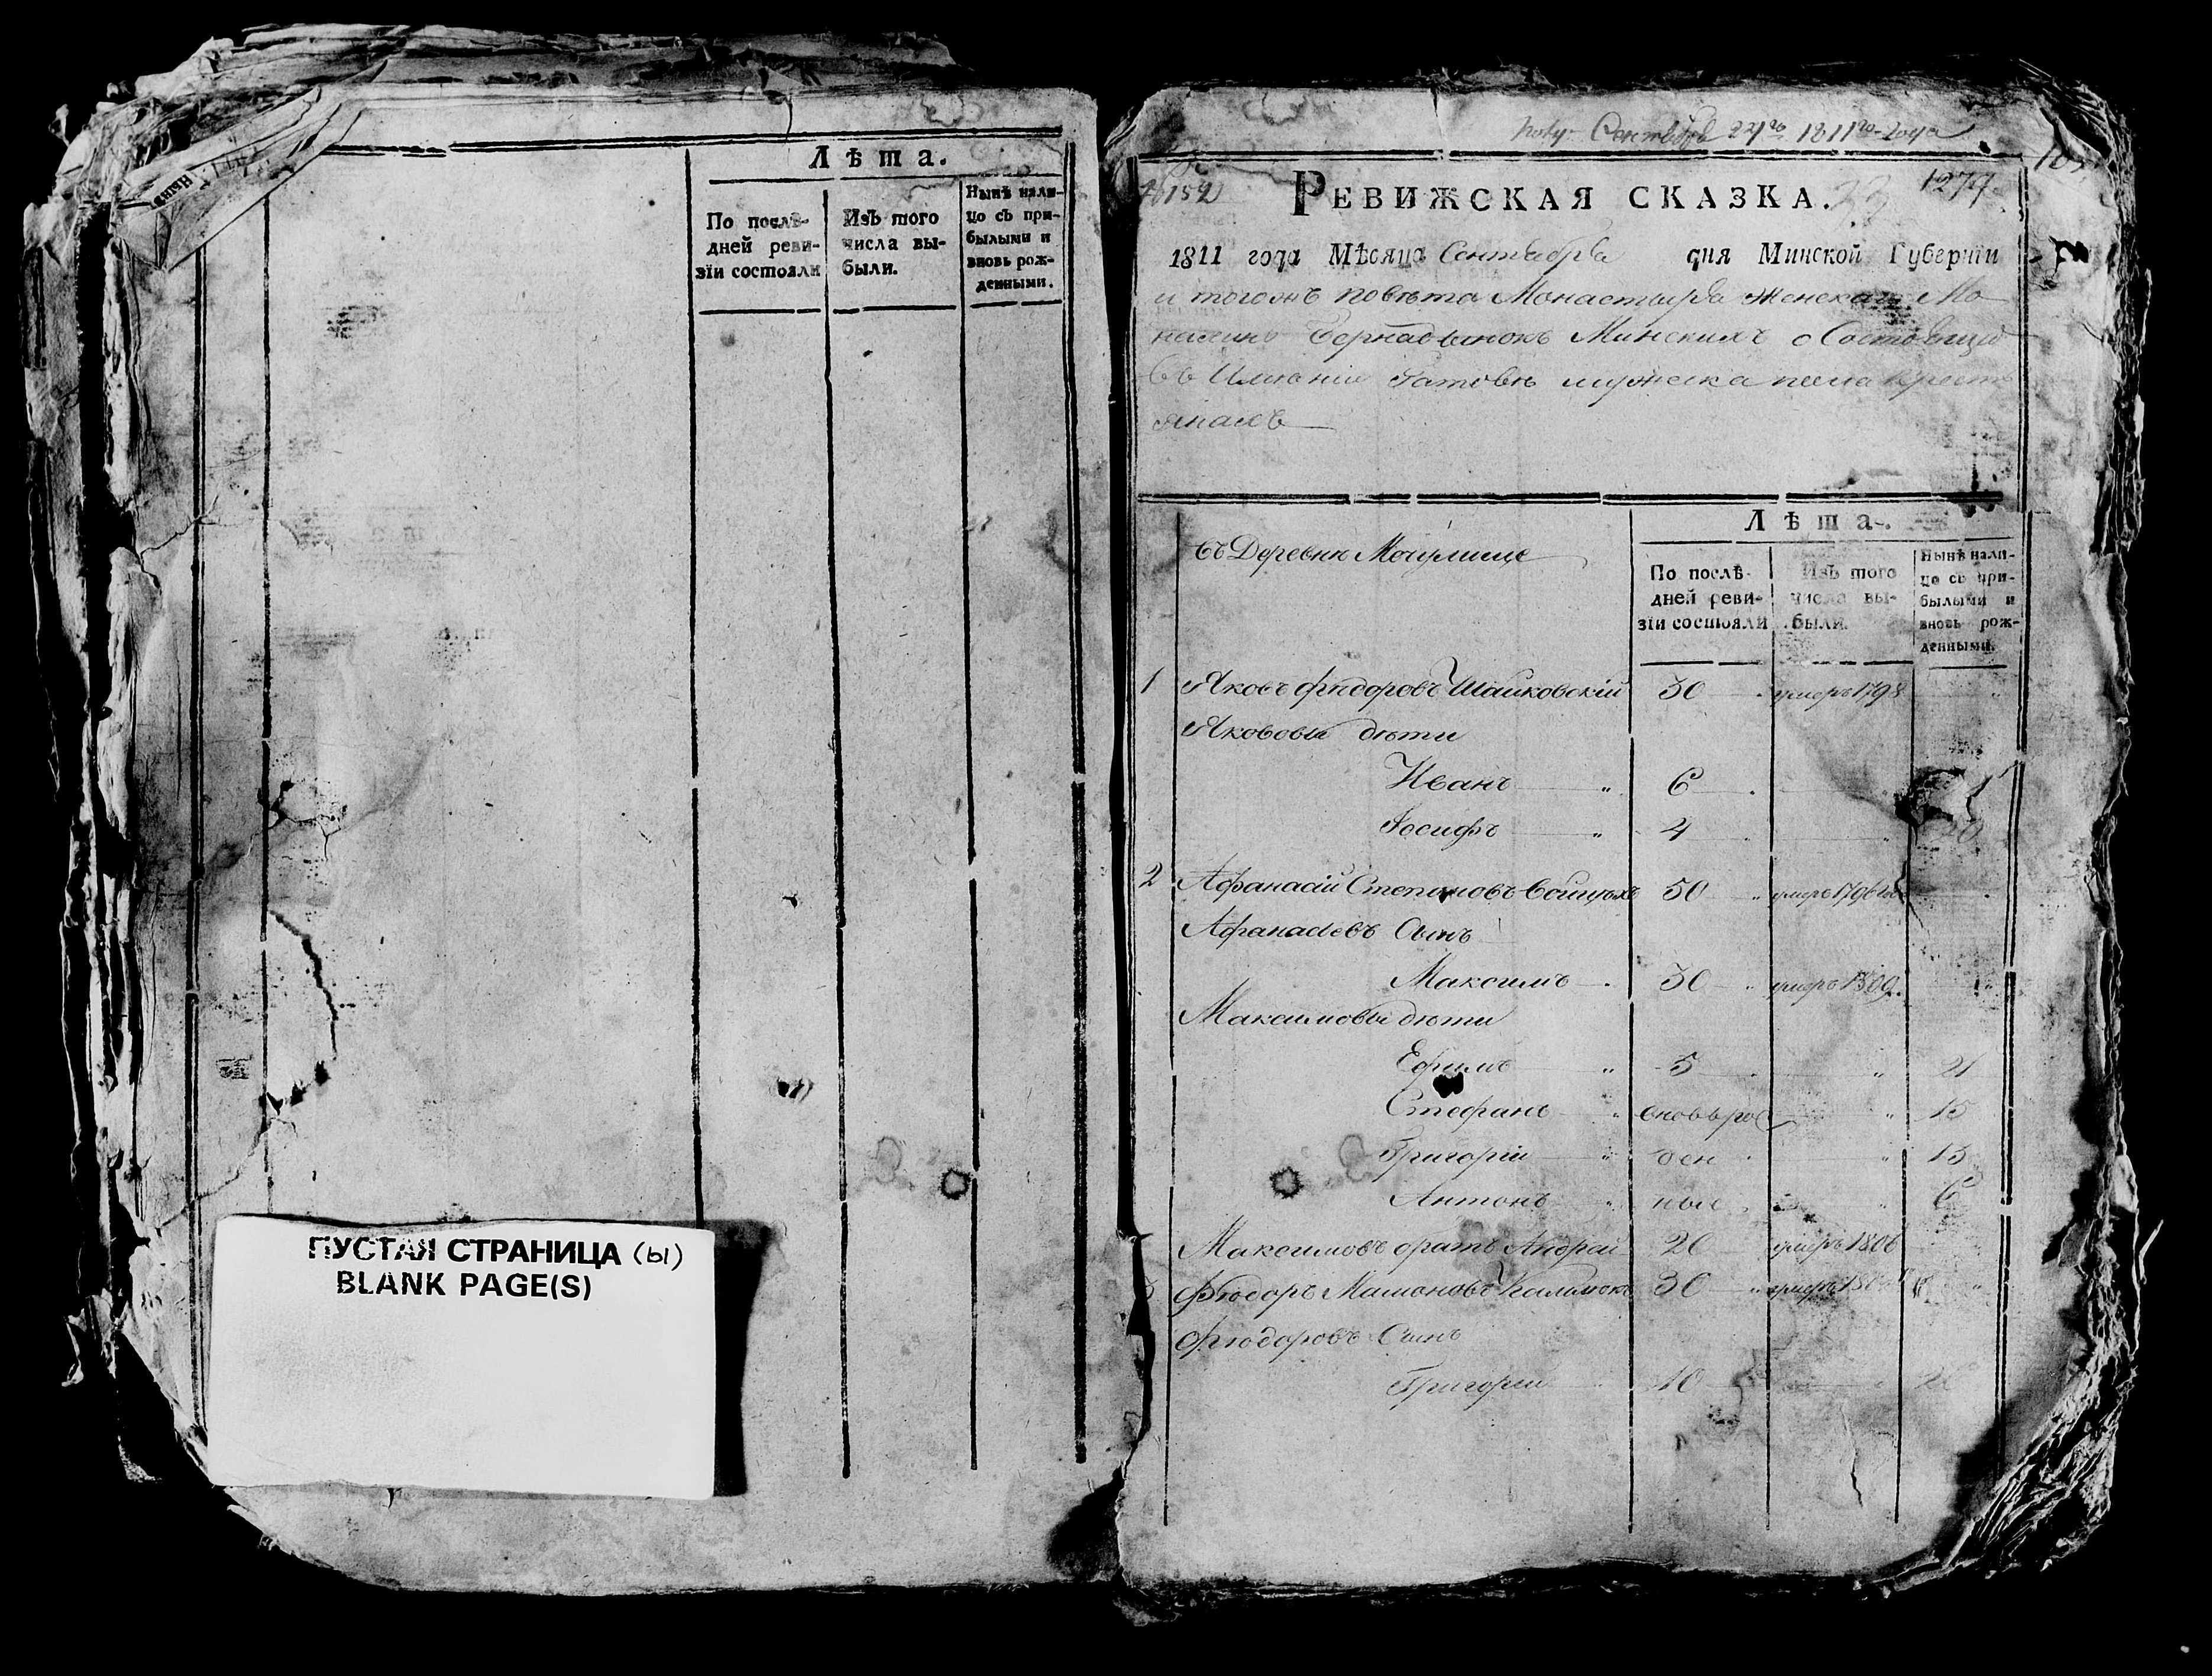 Лѣта.
По послѣ-
дней реви-
зїи состояли
Изъ того
числа вы-
были.
Нынѣ нали-
цо съ при-
былыми и
вновь рож-
денными.
ПУСТАЯ СТРАНИЦА (ы)
BLANK PAGE(S)
Сентября 22го 1811го года
1277
РЕВИЖСКАЯ СКАЗКА.
1811 года Мѣсяца Сентября дня Минской Губернїи
и тогожъ повѣта Монастыря Женскаго
Бернадынокъ Минскихъ о Состоящихъ
въ Имѣніи Гатовѣ мужеска пола Кресть
янахъ
Лѣта.
въ Деревнѣ
По послѣ-
дней реви-
зїи состояли
Изъ того
числа вы-
были.
Нынѣ нали-
цо съ при-
былыми и
вновь рож-
денными.
1 Яковъ Фіодоровъ Шашковскій 30 умеръ 1798
Якововы дѣти
Иванъ 6
Іосифъ 4 20
2 Афанасій Степановъ 50 умеръ 1796
Афанасіевъ Сынъ
Максимъ 30 умеръ 1809
Максимовы дѣти
Ефимъ 5 21
Стефанъ вновь рож 15
Григорій ден 13
Антонъ ные 6
Максимовъ братъ Андрей 20 умеръ 1806
Фіодоръ 30 умеръ
Фіодоровъ Сынъ
Григорій 10